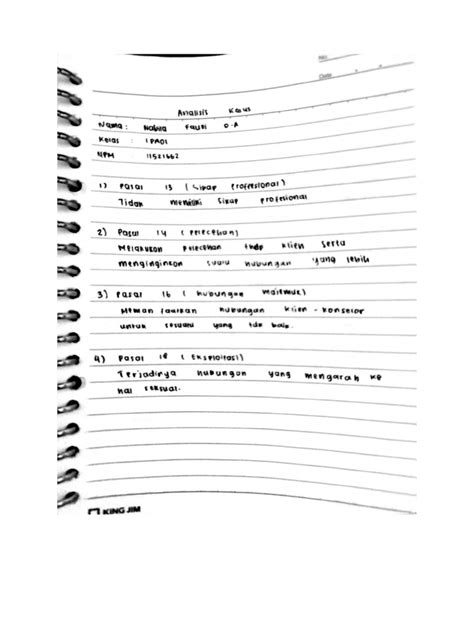 No:
Date
Analisis Kasus
Nama : Nabila Fauzi D.A
Kelas : 1PA01
NPM : 11521662
1) Pasal 13 (Sikap Profesional)
Tidak memiliki sikap profesional
2) Pasal 14 (Pelecehan)
Melakukan pelecehan thdp klien serta
menginginkan suatu hubungan yang lebih
3) Pasal 16 ( hubungan majemuk)
Meman faatkan hubungan klien - konselor
untuk sesuatu yang tdk baik.
4) Pasal 18 ( Eksploitasi)
Terjadinya hubungan yang mengarah ke
hal seksual.
KING JIM